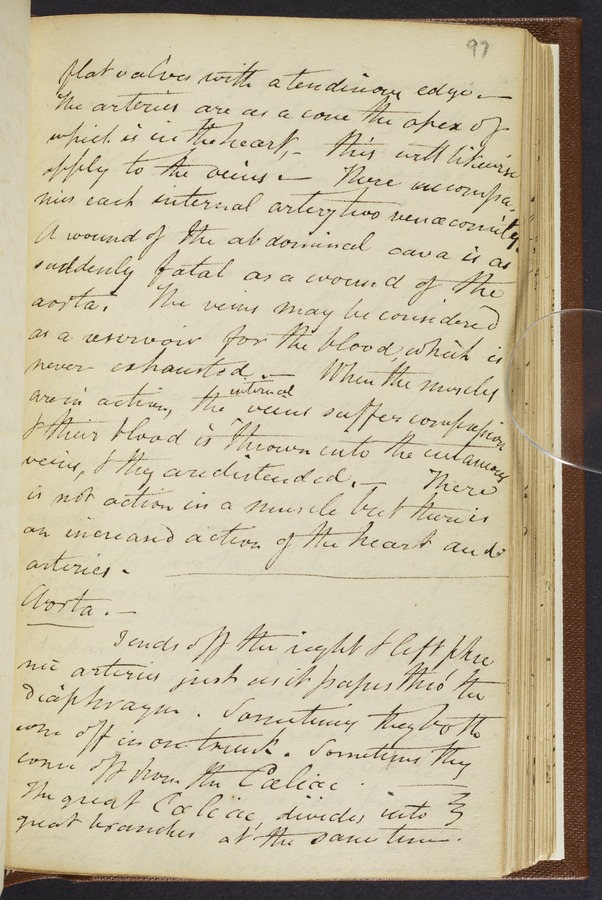 97
flat valves with a tendinous edge. —
The arteries are as a cone the apex of
which is in the heart, - this will likewise
apply to the veins — There accompa-
nies each internal artery two venæ comites.
A wound of the abdominal cava is as
suddenly fatal as a wound of the
aorta. The veins may be considered
as a reservoir for the blood, which is
never exhausted. — When the muscles
are in action, the internal veins suffer compression
& their blood is thrown into the cutaneous
veins, & they are distended. — There
is not action in a muscle but there is
an increased action of the heart and
arteries -
Aorta. —
Sends off the right & left phre
nic arteries just as it passes thro' the
Diaphragm. Sometimes they both
come off in one trunk. Sometimes they
come off from the Cæliac. —
The great Cæliac, divides into 3
great branches at the same time.